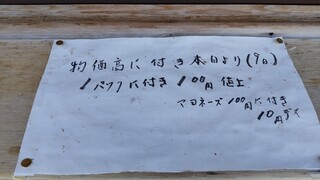 物価高に付き本日より(9日)
1パック に付き 100円 値上
マヨネーズ 100円に付き
10円